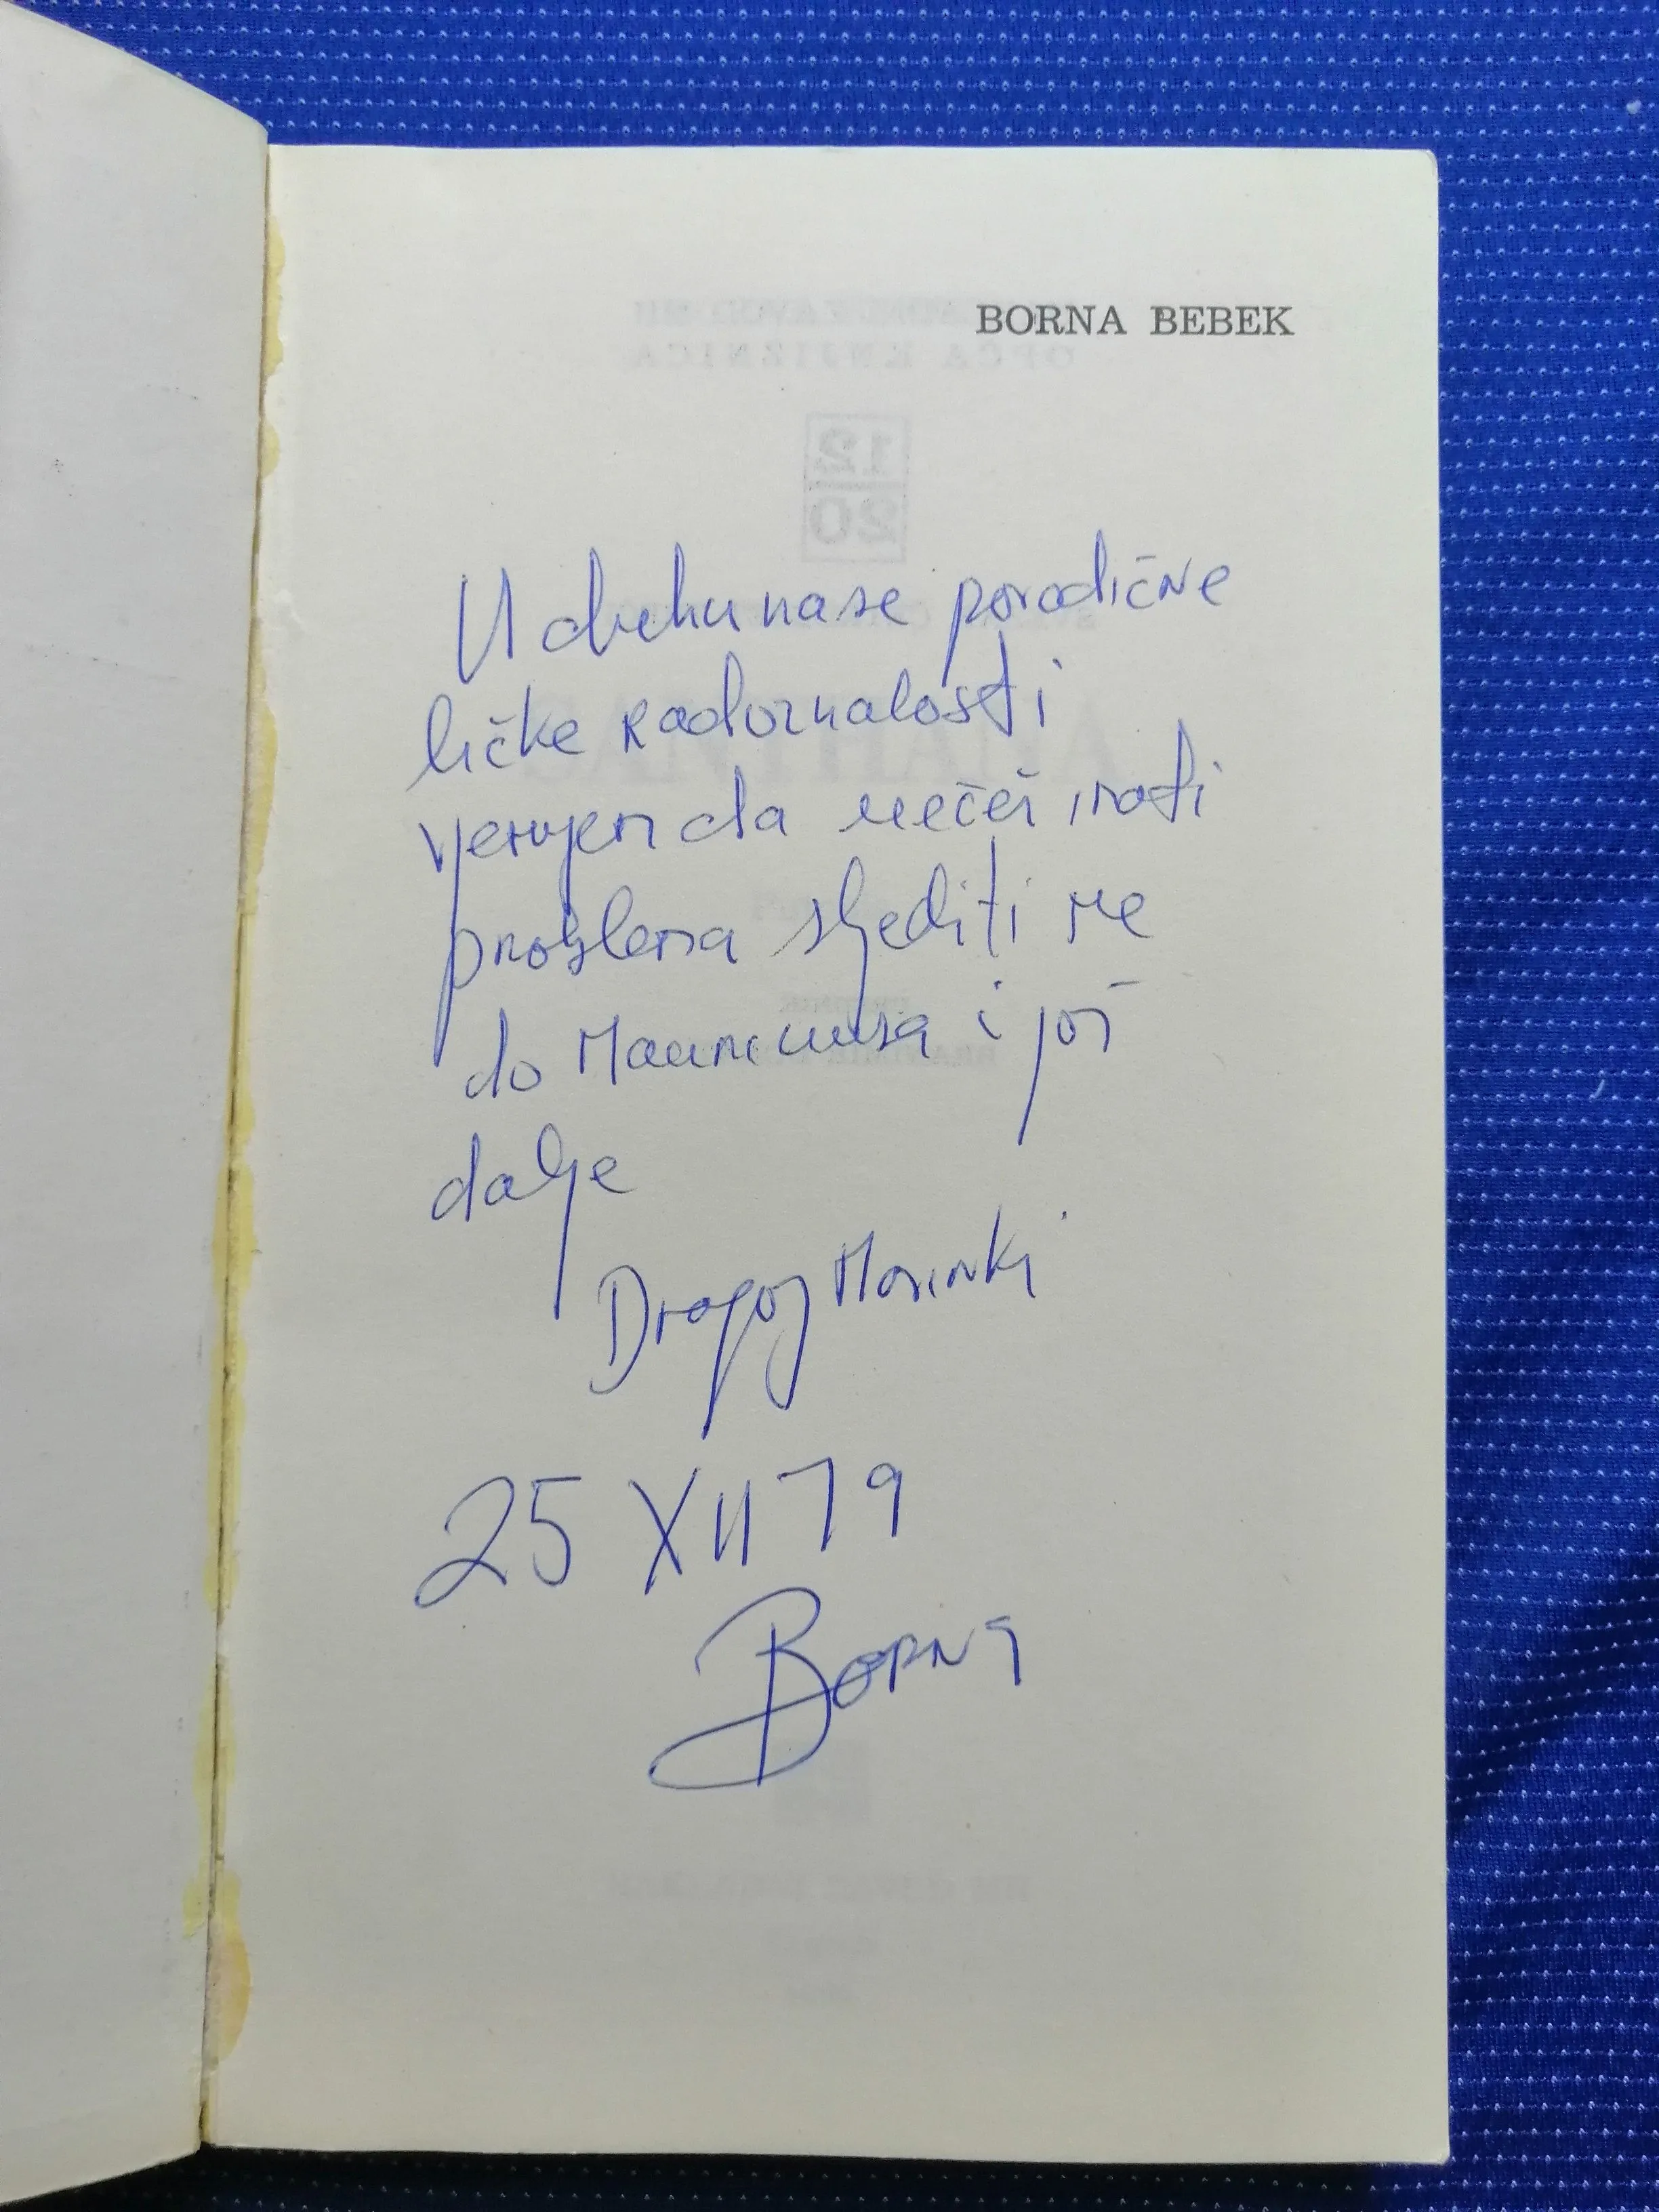 BORNA BEBEK
U duhu nase porodične
ličke radoznalosti
vjerujem da nećeš imati
problema sljediti me
do Mauriciusa i još
dalje
Dragoj
25 XII 79
BORNA